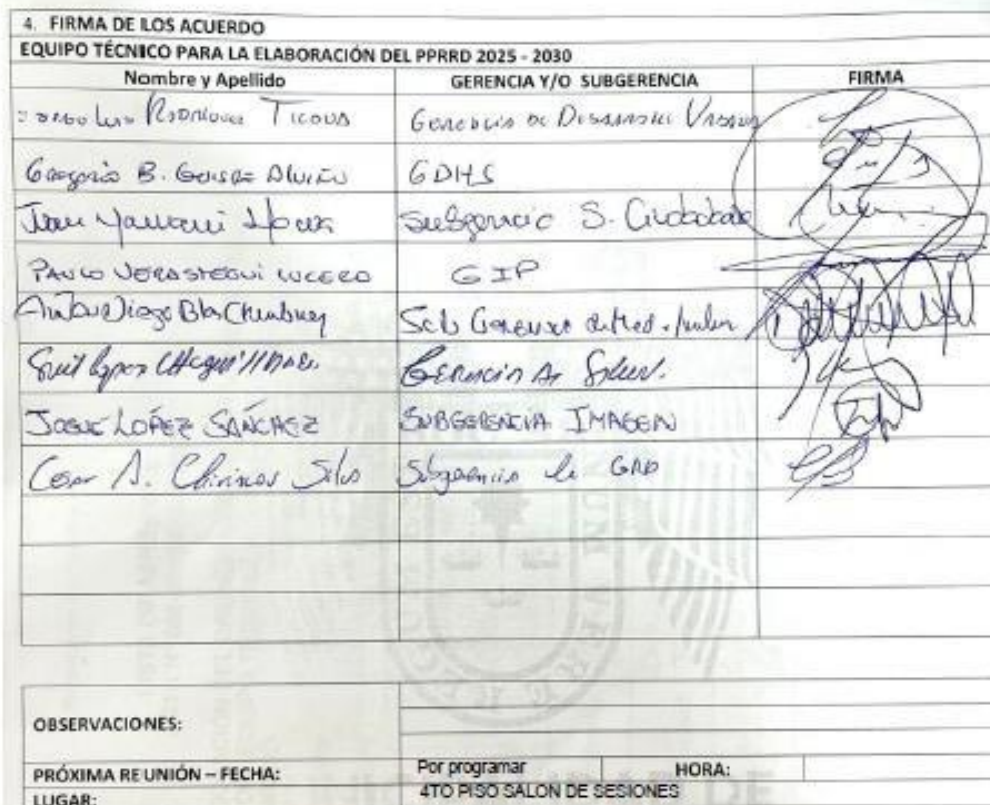 4. FIRMA DE LOS ACUERDO
EQUIPO TÉCNICO PARA LA ELABORACIÓN DEL PPRRD 2025 - 2030
Nombre y Apellido GERENCIA Y/O SUBGERENCIA FIRMA
Luis Rodríguez Ticona Gerencia de Desarrollo Urbano
Gregorio B. GDHS
Juan Mamani Subgerencia S. Ciudadana
PAULO VERASTEGUI LUCERO GIP
Diego Blas Sub Gerencia
Gerencia
JOSUE LÓPEZ SÁNCHEZ SUBGERENCIA IMAGEN
Cesar A. Chirinos Silva Subgerencia de GRD
OBSERVACIONES:
PRÓXIMA REUNIÓN – FECHA: Por programar HORA:
LUGAR: 4TO PISO SALON DE SESIONES